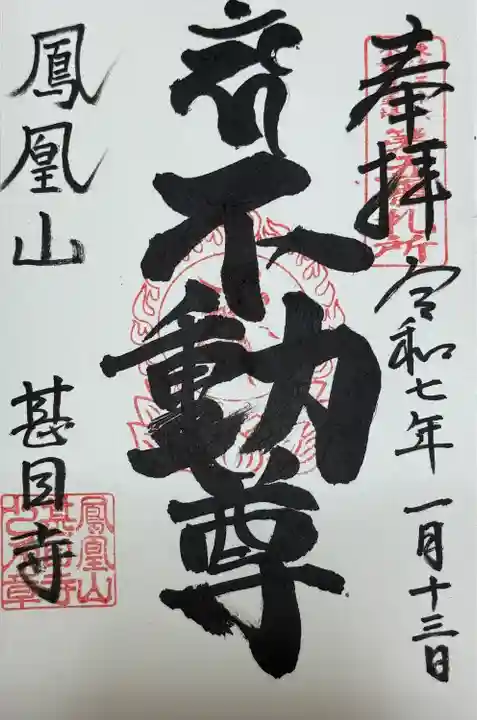 奉拝
令和七年 一月十三日
不動尊
鳳凰山
甚目寺
鳳凰山
甚目寺